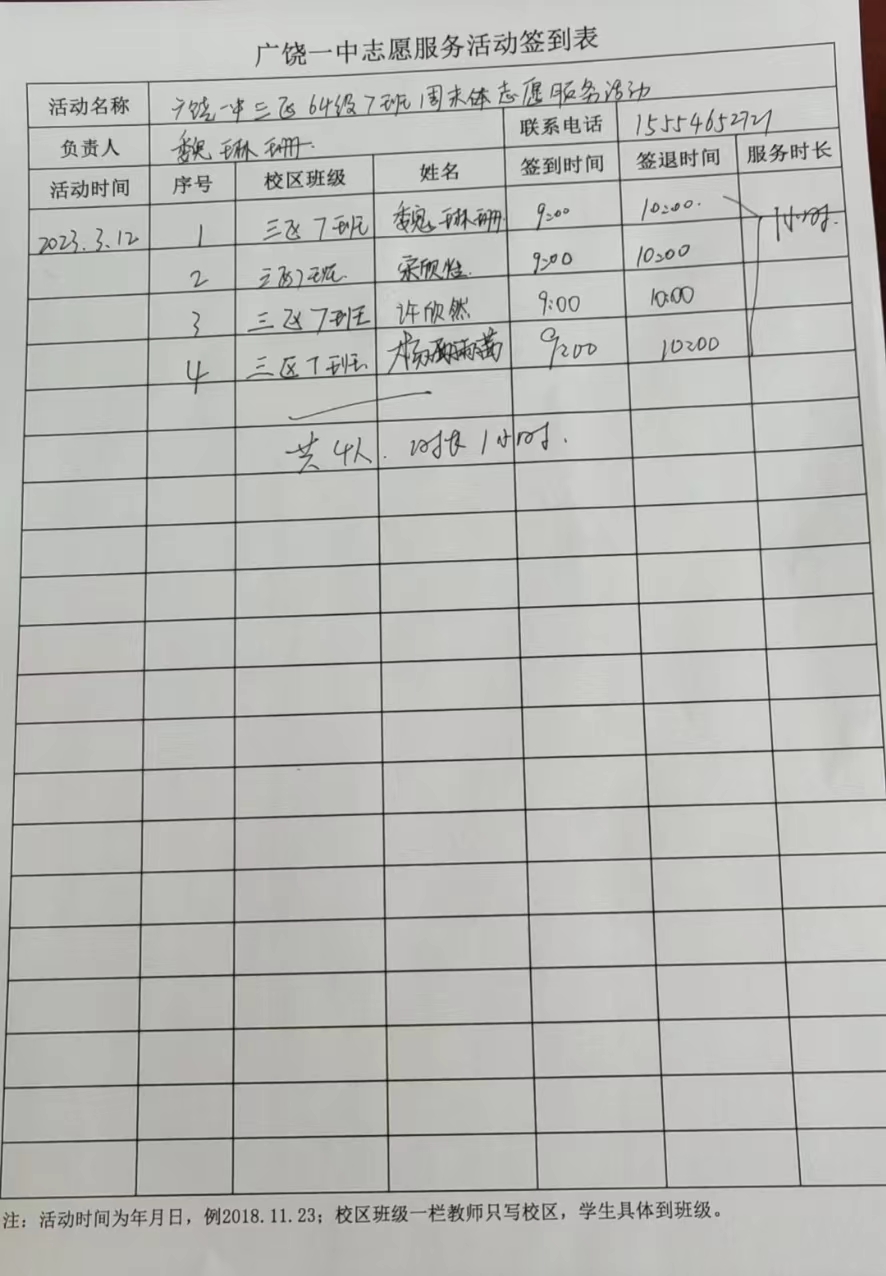 广饶一中志愿服务活动签到表
活动名称 广饶一中三区64级7班周末休志愿服务活动
负责人 魏琳珊 联系电话 15554652721
活动时间 序号 校区班级 姓名 签到时间 签退时间 服务时长
2023.3.12 1 三区7班 魏琳珊 9:00 10:00 1小时
2 三区7班 宋欣怡 9:00 10:00
3 三区7班 许欣然 9:00 10:00
4 三区7班 9:00 10:00
共4人. 时长1小时.
注：活动时间为年月日，例2018.11.23；校区班级一栏教师只写校区，学生具体到班级。